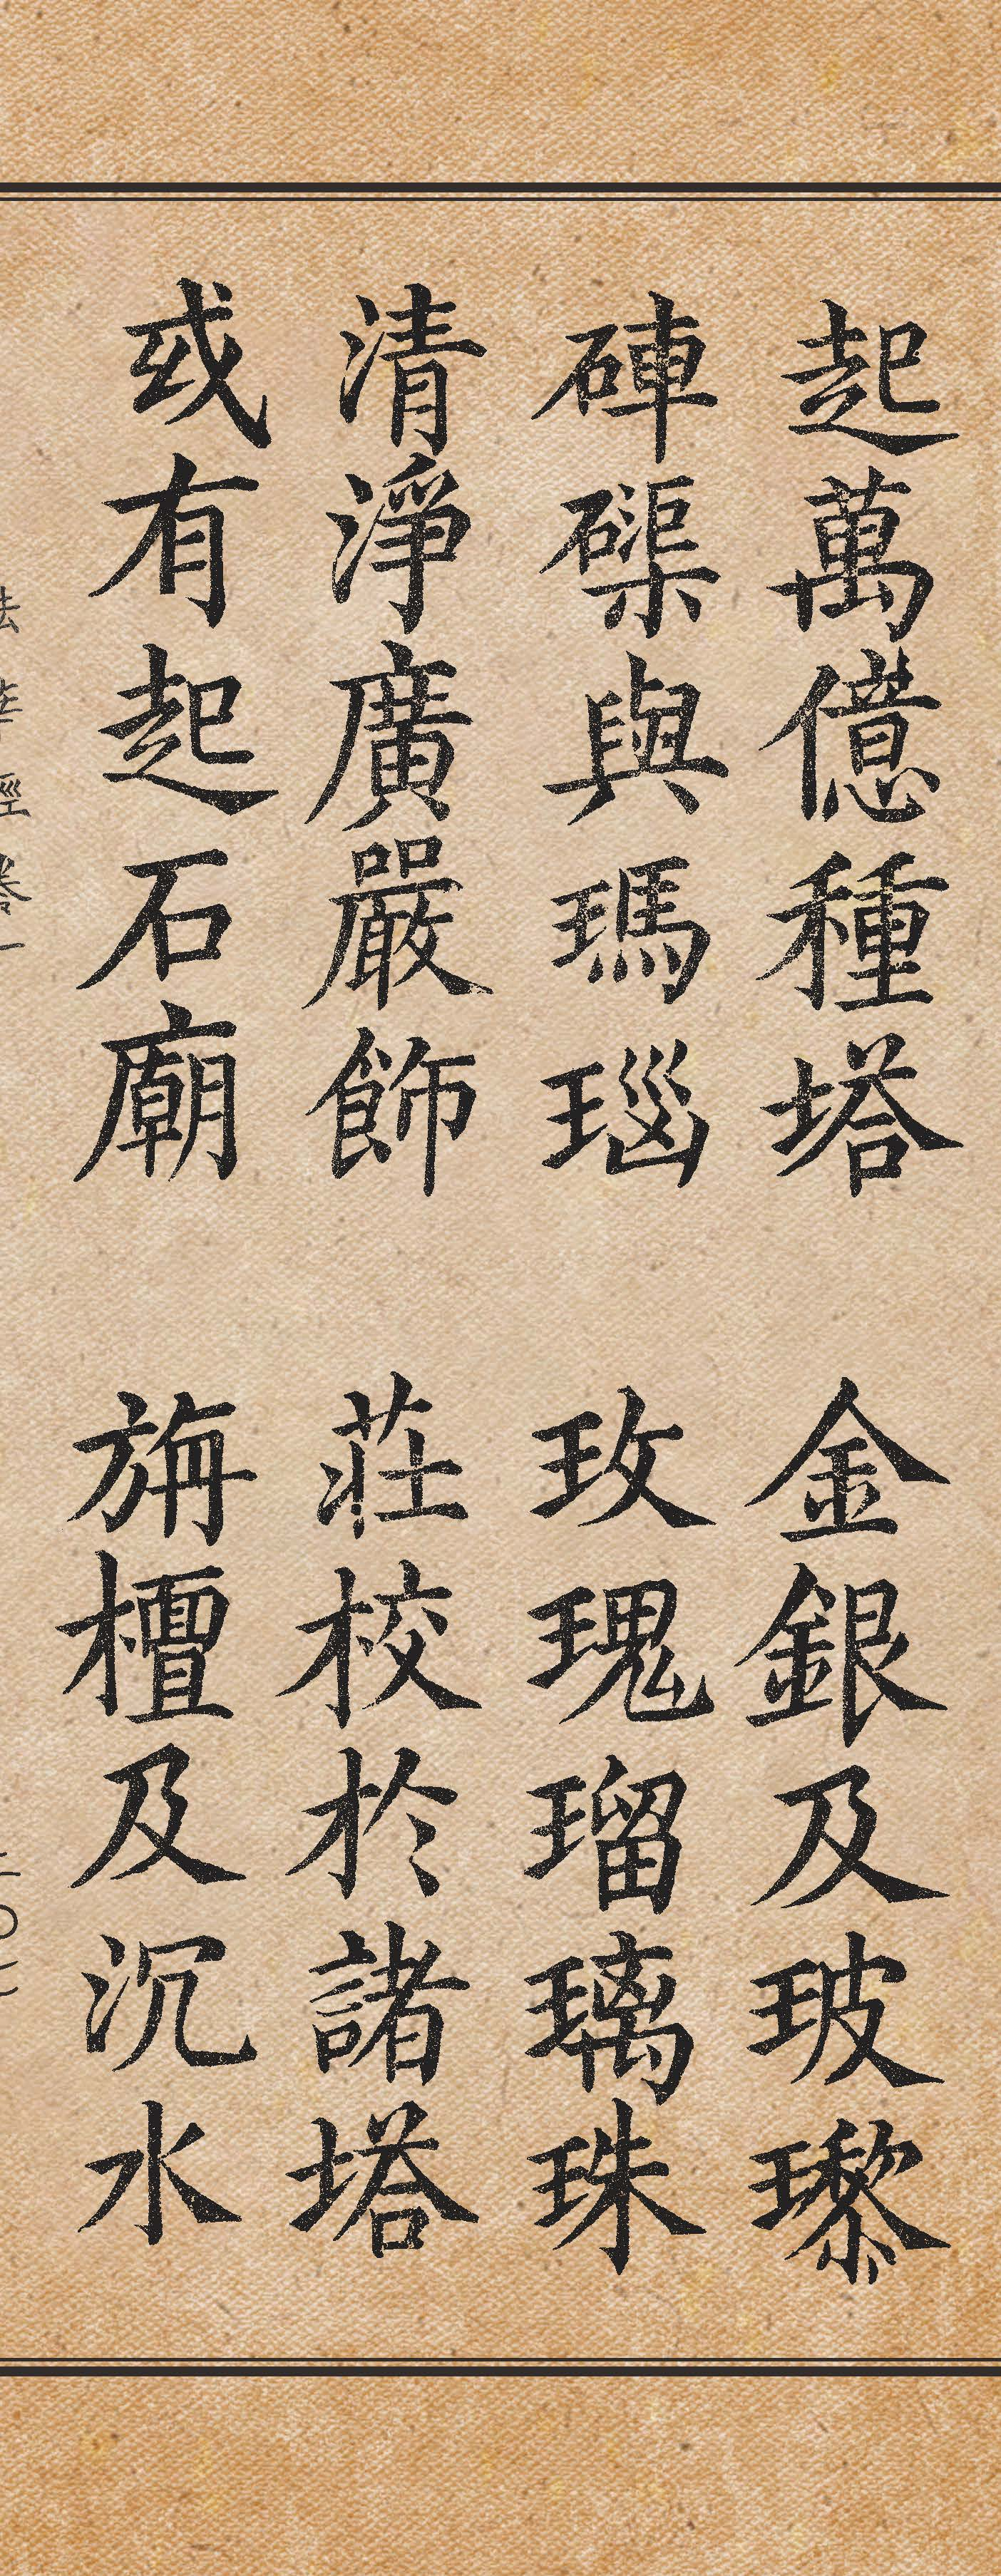 起萬億種塔 金銀及玻瓈
硨磲與瑪瑙 玫瑰瑠璃珠
清淨廣嚴飾 莊校於諸塔
或有起石廟 旃檀及沉水
法華經卷一